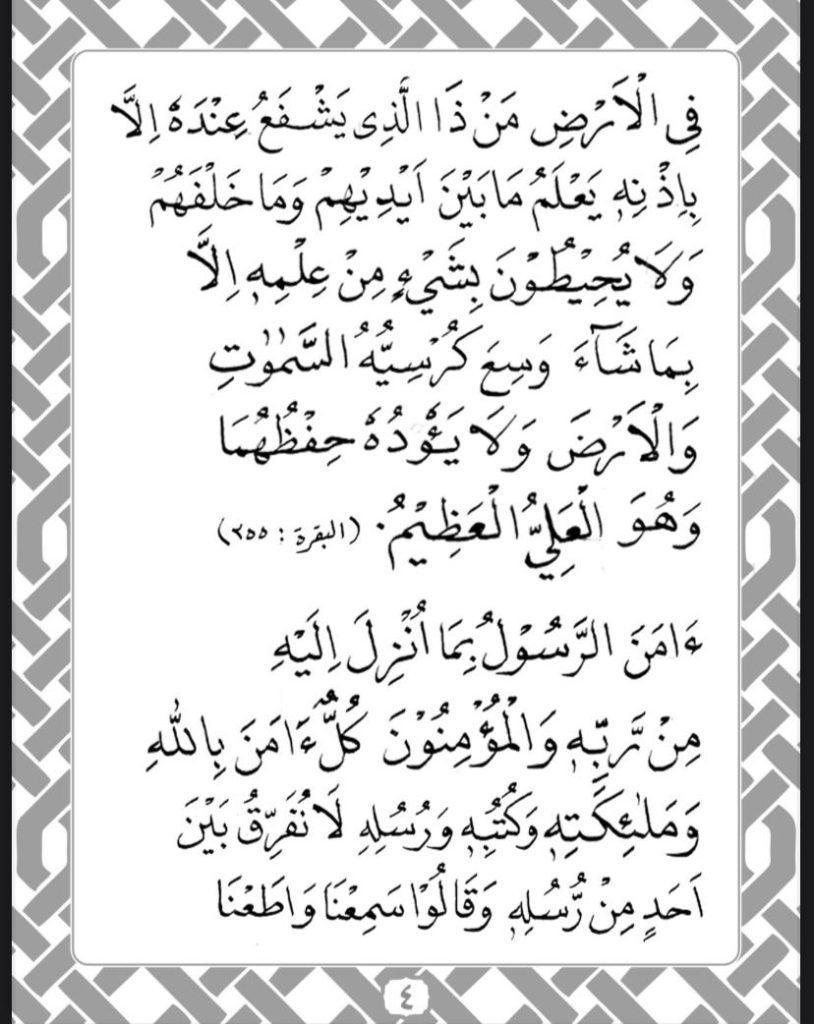 فِى الْاَرْضِ مَنْ ذَا الَّذِى يَشْفَعُ عِنْدَهٗ اِلَّا
بِاِذْنِهٖ يَعْلَمُ مَابَيْنَ اَيْدِيْهِمْ وَمَا خَلْفَهُمْ
وَلَا يُحِيْطُوْنَ بِشَيْءٍ مِنْ عِلْمِهٖ اِلَّا
بِمَا شَآءَ وَسِعَ كُرْسِيُّهُ السَّمٰوٰتِ
وَالْاَرْضَ وَلَا يَـُٔوْدُهٗ حِفْظُهُمَا
وَهُوَ الْعَلِيُّ الْعَظِيْمُ. (البقرة : ٢٥٥)
ءَامَنَ الرَّسُوْلُ بِمَا اُنْزِلَ اِلَيْهِ
مِنْ رَّبِّهٖ وَالْمُؤْمِنُوْنَ كُلٌّ ءَامَنَ بِاللّٰهِ
وَمَلٰئِكَتِهٖ وَكُتُبِهٖ وَرُسُلِهٖ لَا نُفَرِّقُ بَيْنَ
اَحَدٍ مِنْ رُّسُلِهٖ وَقَالُوْا سَمِعْنَا وَاَطَعْنَا
٤